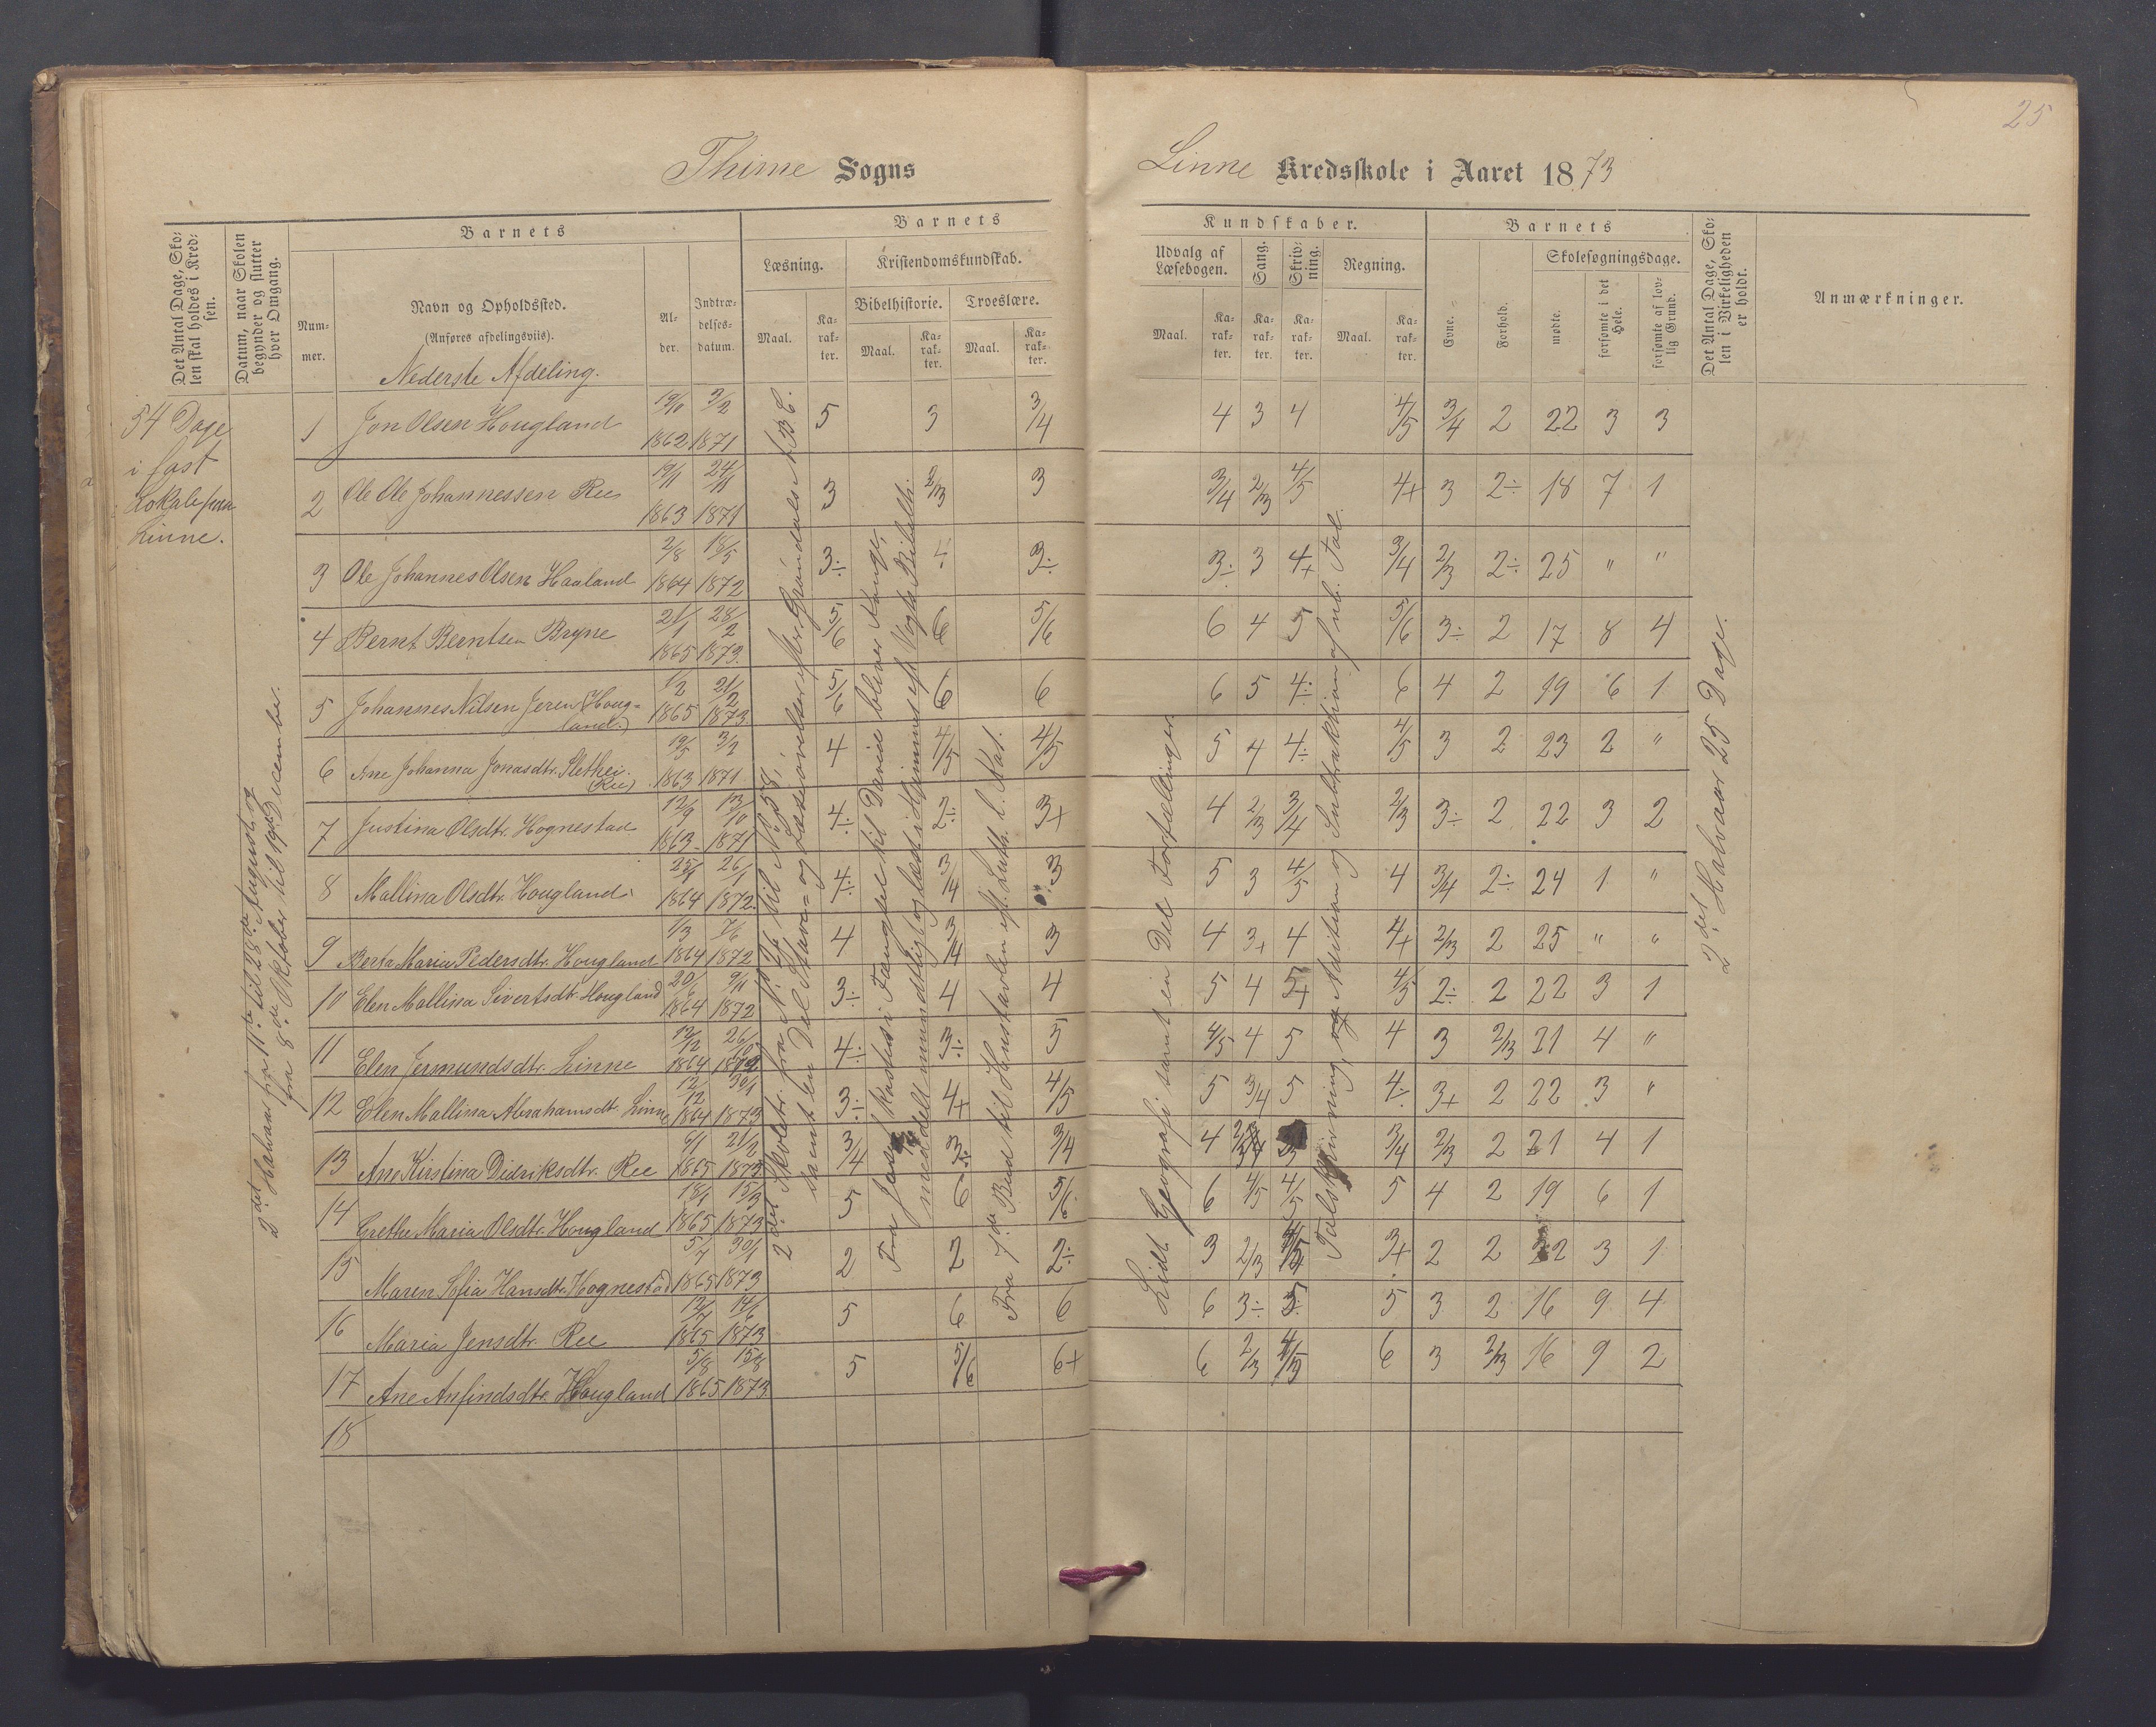 25
Thime Sogns
Linne Kredsskole i Aaret 1873
Det Antal Dage, Skolen skal holdes i Kredsen.
Datum, naar Skolen begynder og slutter hver Omgang.
Barnets
Nummer.
Navn og Opholdssted.
(Anføres afdelingsviis).
Nederste Afdeling.
Alder.
Indtrædelsesdatum.
Barnets
Læsning.
Kristendomskundskab.
Bibelhistorie.
Troeslære.
Maal.
Karakter.
Maal.
Karakter.
Maal.
Karakter.
Kundskaber.
Udvalg af Læsebogen.
Sang.
Skrivning.
Regning.
Maal.
Karakter.
Karakter.
Karakter.
Maal.
Karakter.
Barnets
Evne.
Forhold.
Skolesøgningsdage.
mødte.
forsømte i det Hele.
forsømte af lovlig Grund.
Det Antal Dage, Skolen i Virkeligheden er holdt.
Anmærkninger.
54 Dage
i fast
Lokale paa
Linne.
2det Halvaar fra 11te til 28de August og
fra 8de Oktober til 19de December.
1 Jon Olsen Hougland 19/11 1862 3/2 1871 5 3 3/4 4 3 4 4/5 3/4 2 22 3 3
2 Ole Ole Johannessen Ree 19/11 1863 24/11 1871 3 2/3 3 3/4 2/3 4/5 4+ 3 2÷ 18 7 1
3 Ole Johannes Olsen Haaland 2/8 1864 18/5 1872 3÷ 4 3÷ 3÷ 3 4+ 3/4 2/3 2÷ 25 " "
4 Bernt Berntsen Bryne 21/1 1865 28/2 1873. 5/6 6 5/6 6 4 5 5/6 3÷ 2 17 8 4
5 Johannes Nilsen Jeren (Hougland.) 1/2 1865 21/2 1873. 5/6 6 6 6 5 4÷ 6 4 2 19 6 1
6 Ane Johanna Jonasdtr. Slethei. (Ree) 19/5 1863 3/2 1871 4 4/5 4/5 5 4 4÷ 4/5 3 2 23 2 "
7 Justina Olsdtr. Hognestad 12/9 1863 13/10 1871 4÷ 2÷ 3+ 4 2/3 3/4 2/3 3÷ 2 22 3 2
8 Mallina Olsdtr. Hougland 25/1 1864 26/1 1872. 4÷ 3/4 3 5 3 4/5 4 3/4 2÷ 24 1 "
9 Berta Maria Pedersdtr. Hougland 1/3 1864 7/6 1872 4 3/4 3 4 3+ 4 4+ 2/3 2 25 " "
10 Elen Mallina Sivertsdtr. Hougland 20/6 1864 9/11 1872 3÷ 4 4 5 4 5+ 4/5 2÷ 2 22 3 1
11 Elen Jermundsdtr. Linne 13/12 1864 26/10 4÷ 3÷ 3 4/5 4 5 4 3 2/3 21 4 "
12 Elen Mallina Abrahamsdt. Linne 12/12 1864 30/1 1873 3÷ 4+ 4/5 5 3/4 5 4÷ 3+ 2 22 3 "
13 Ane Kirstina Didriksdtr. Ree 6/1 1865 21/2 1873 3/4 3÷ 3/4 4 3/4 2/3 2 21 4 1
14 Grethe Maria Olsdtr. Hougland 18/1 1865 15/3 1873 5 6 5/6 6 4/5 4/5 5 4 2 19 6 1
15 Maren Sofia Hansdtr. Hognestad 5/7 1865 30/1 1873 2 2 2÷ 3 2/3 3+ 2 2 22 3 1
16 Maria Jensdtr. Ree 12/7 1865 14/6 1873 5 6 6 6 3÷ 5 5 3 2 16 9 4
17 Ane Anfindsdtr. Hougland 5/8 1865 15/8 1873. 5 5/6 6+ 6 2/3 6 3 2/3 16 9 2
18
2det Skoletr. fra No. 26 til No. 58,
samt en Del Stave- og Læseøvelser efter Grøndals A.B.C.
Fra Josef kastes i Fængsel til David bliver Konge,
meddelt mundtligt og læst i Hjemmet eft. Vogts Bibelh.
Fra 7de Bud til Hustavlen eft. Luth. l. Kat.
Lidt Geografi samt en Del Fortællinger
Talskrivning, og Addition og Subtraktion af ub. Tal.
2det Halvaar 25 Dage.